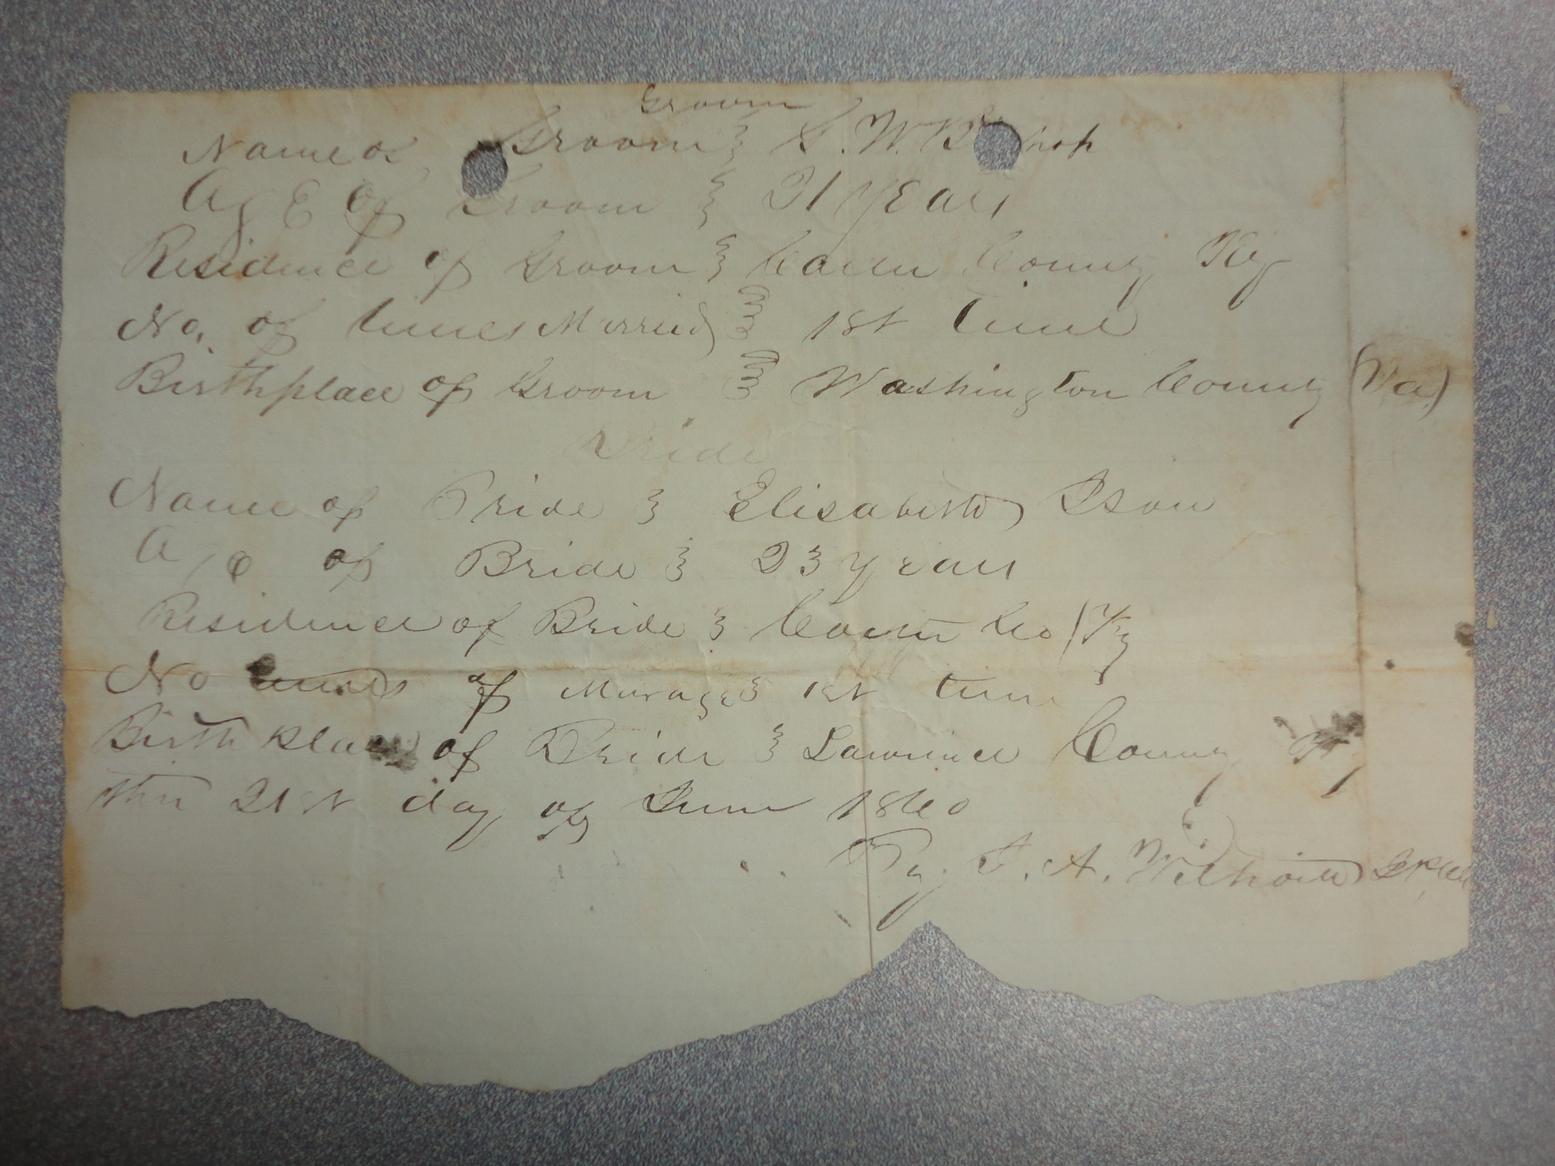 Groom
Name of Groom } S. W. Bishop
Age of Groom } 21 years
Residence of Groom } Carter County Ky
No. of times Married } 1st time
Birthplace of Groom } Washington County (Va)
Bride
Name of Bride } Elisabeth Ison
Age of Bride } 23 years
Residence of Bride } Carter Co (Ky
No times of Marage } 1st time
Birth place of Bride } Lawrence County Ky
this 21st day of June 1860
J. A. Wilhoite